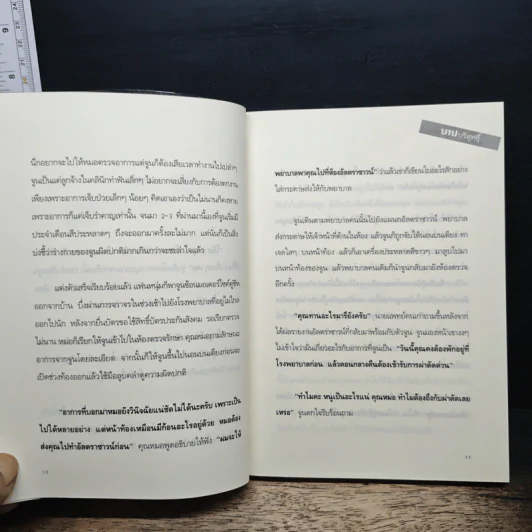 นึกอยากจะไปให้หมอตรวจอาการแต่จูนก็ต้องเสียเวลาทำงานไปเปล่าๆ
จูนเป็นแค่ลูกจ้างในคลินิกทำฟันเล็กๆ ไม่อยากจะเสี่ยงกับการต้องตกงาน
เพียงเพราะอาการเจ็บป่วยเล็กๆ น้อยๆ คิดเอาเองว่าเป็นไม่นานก็คงหาย
เพราะอาการก็แค่เจ็บรำคาญเท่านั้น จนมา 2-3 ที่ผ่านมานี้เองที่จูนเริ่มมี
ประจำเดือนสีประหลาดๆ ถึงจะออกมาครั้งละไม่มาก แต่นั่นก็เป็นสิ่ง
บ่งชี้ว่าร่างกายของจูนผิดปกติมากเกินกว่าจะชะล่าใจแล้ว
แต่งตัวเสร็จเรียบร้อยแล้ว แฟนหนุ่มก็พาจูนซ้อนมอเตอร์ไซค์คู่ชีพ
ออกจากบ้าน บึ่งผ่านการจราจรในช่วงเช้าไปยังโรงพยาบาลที่อยู่ไม่ไกล
ออกไปนัก หลังจากยื่นบัตรขอใช้สิทธิ์บัตรประกันสังคม รอเรียกตรวจ
ไม่นาน หมอก็เรียกให้จูนเข้าไปในห้องตรวจรักษา คุณหมอถามลักษณะ
อาการจากจูนโดยละเอียด จากนั้นก็ให้จูนขึ้นไปนอนบนเตียงก่อนจะ
เปิดช่วงท้องออกแล้วใช้มือลูบคลำดูความผิดปกติ
"อาการที่บอกมาหมอยังวินิจฉัยแน่ชัดไม่ได้นะครับ เพราะเป็น
ไปได้หลายอย่าง แต่หน้าท้องเหมือนมีก้อนอะไรอยู่ด้วย หมอต้อง
ส่งคุณไปทำอัลตราซาวน์ก่อน" คุณหมอพูดอธิบายให้ฟัง "ผมจะให้
บาปบริสุทธิ์
พยาบาลพาคุณไปที่ห้องอัลตราซาวน์" ว่าแล้วเขาก็เขียนใบอะไรสักอย่าง
ส่งกระดาษส่งให้กับพยาบาล
จูนเดินตามพยาบาลคนนั้นไปยังแผนกอัลตราซาวน์ พยาบาล
ส่งกระดาษให้เจ้าหน้าที่ด้านในห้อง แล้วจูนก็ถูกจับให้นอนบนเตียง ทา
เจลใสๆ บนหน้าท้อง แล้วก็เอาเครื่องประหลาดสีขาวๆ มาลูบไปมา
บนหน้าท้องของจูน แล้วพยาบาลคนเดิมก็นำจูนกลับมายังห้องตรวจ
อีกครั้ง
"คุณทานอะไรมารึยังครับ" นายแพทย์คนเก่าถามขึ้นหลังจาก
ได้ผ
ไม่เข้าใจว่ามันเกี่ยวอะไรกับอาการที่จูนเป็น "วันนี้คุณคงต้องพักอยู่ที่
โรงพยาบาลก่อน แล้วตอนกลางคืนต้องเข้ารับการผ่าตัดด่วน"
"ทำไมคะ หนูเป็นอะไรแน่ คุณหมอ ทำไมต้องถึงกับผ่าตัดเลย
เหรอ" จูนตกใจรีบร้อนถาม